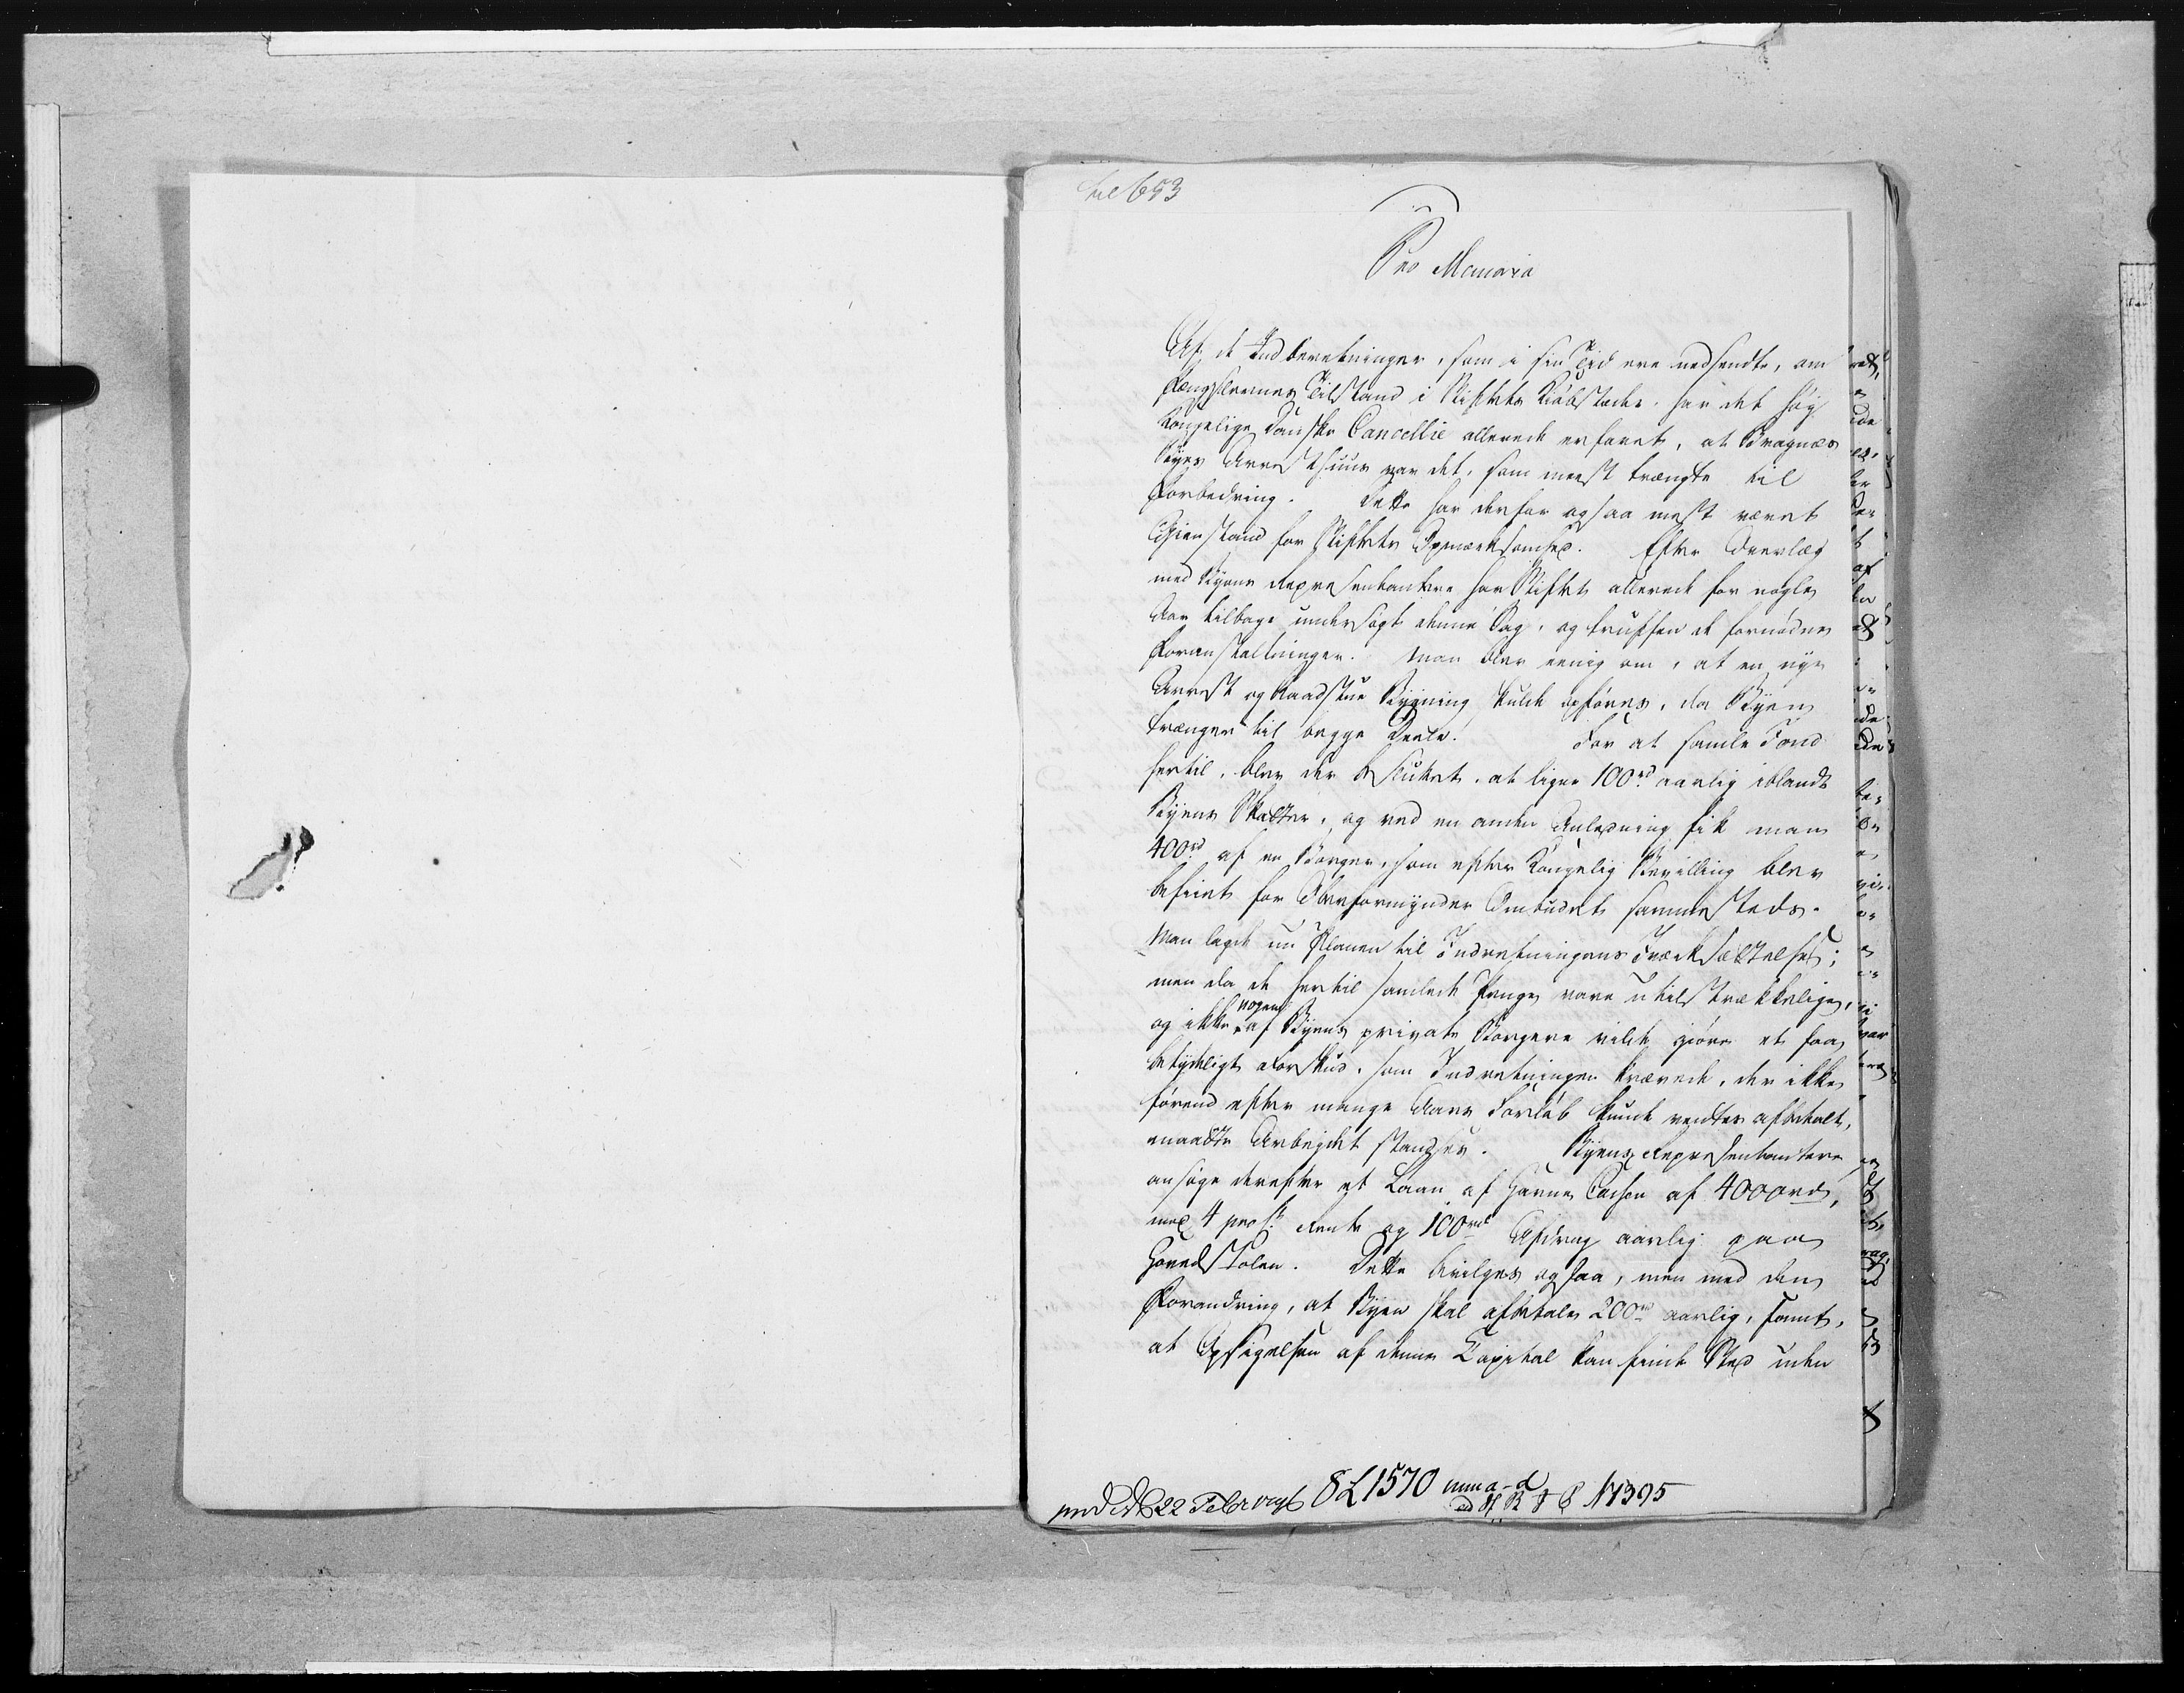 til 653
Pro Memoria
Af de Indberetninger, som i sin Tid ere nedsendte, om
Fængslernes Tilstand i Stiftets Kiøbstæder, har det høy
Kongelige Danske Cancellie allerede erfaret, at Bragnæs
Byes Arresthuus var det, som meest trængte til
Forbedring. Dette har derfor ogsaa mest været
Gienstand for Stiftets Opmærksomhed. Efter Overlæg
med Byens Repræsentantere har Stiftet allerede for nogle
Aar tilbage undersøgt denne Sag, og truffen de fornødne
Foranstaltninger. Man blev eenig om, at en nye
Arrest og Raadstue Bygning skulde opføres, da Byen
trænger til begge Deele. For at samle Fond
hertil, blev der besluttet, at ligne 100rd aarlig iblandt
Byens Skatter, og ved en anden Anledning fik man
400rd af en Borger, som efter Kongelig Bevilling blev
befriet for Overformynder Ombudet sammesteds.
Man lagde nu Planen til Indretningens Iværksættelse;
men da de hertil samlede Penge vare utilstrækkelige,
og ikke nogen af Byens private Borgere vilde giøre et saa
betydeligt Forskud, som Indretningen krævede, der ikke
førend efter mange Aars Forløb kunde ventes afbetalt,
maatte Arbejdet standses. Byens Repræsentantere
ansøgte derefter et Laan af Havne Cassen af 4000rd,
med 4 pro Ct. Rente og 100rd Afdrag aarlig paa
Hovedstolen. Dette bevilges ogsaa, men med den
Forandring, at Byen skal afbetale 200rd aarlig, samt,
at Opsigelsen af denne Capital kan finde Sted uden
22 Febr 8 L 1570 N 1395